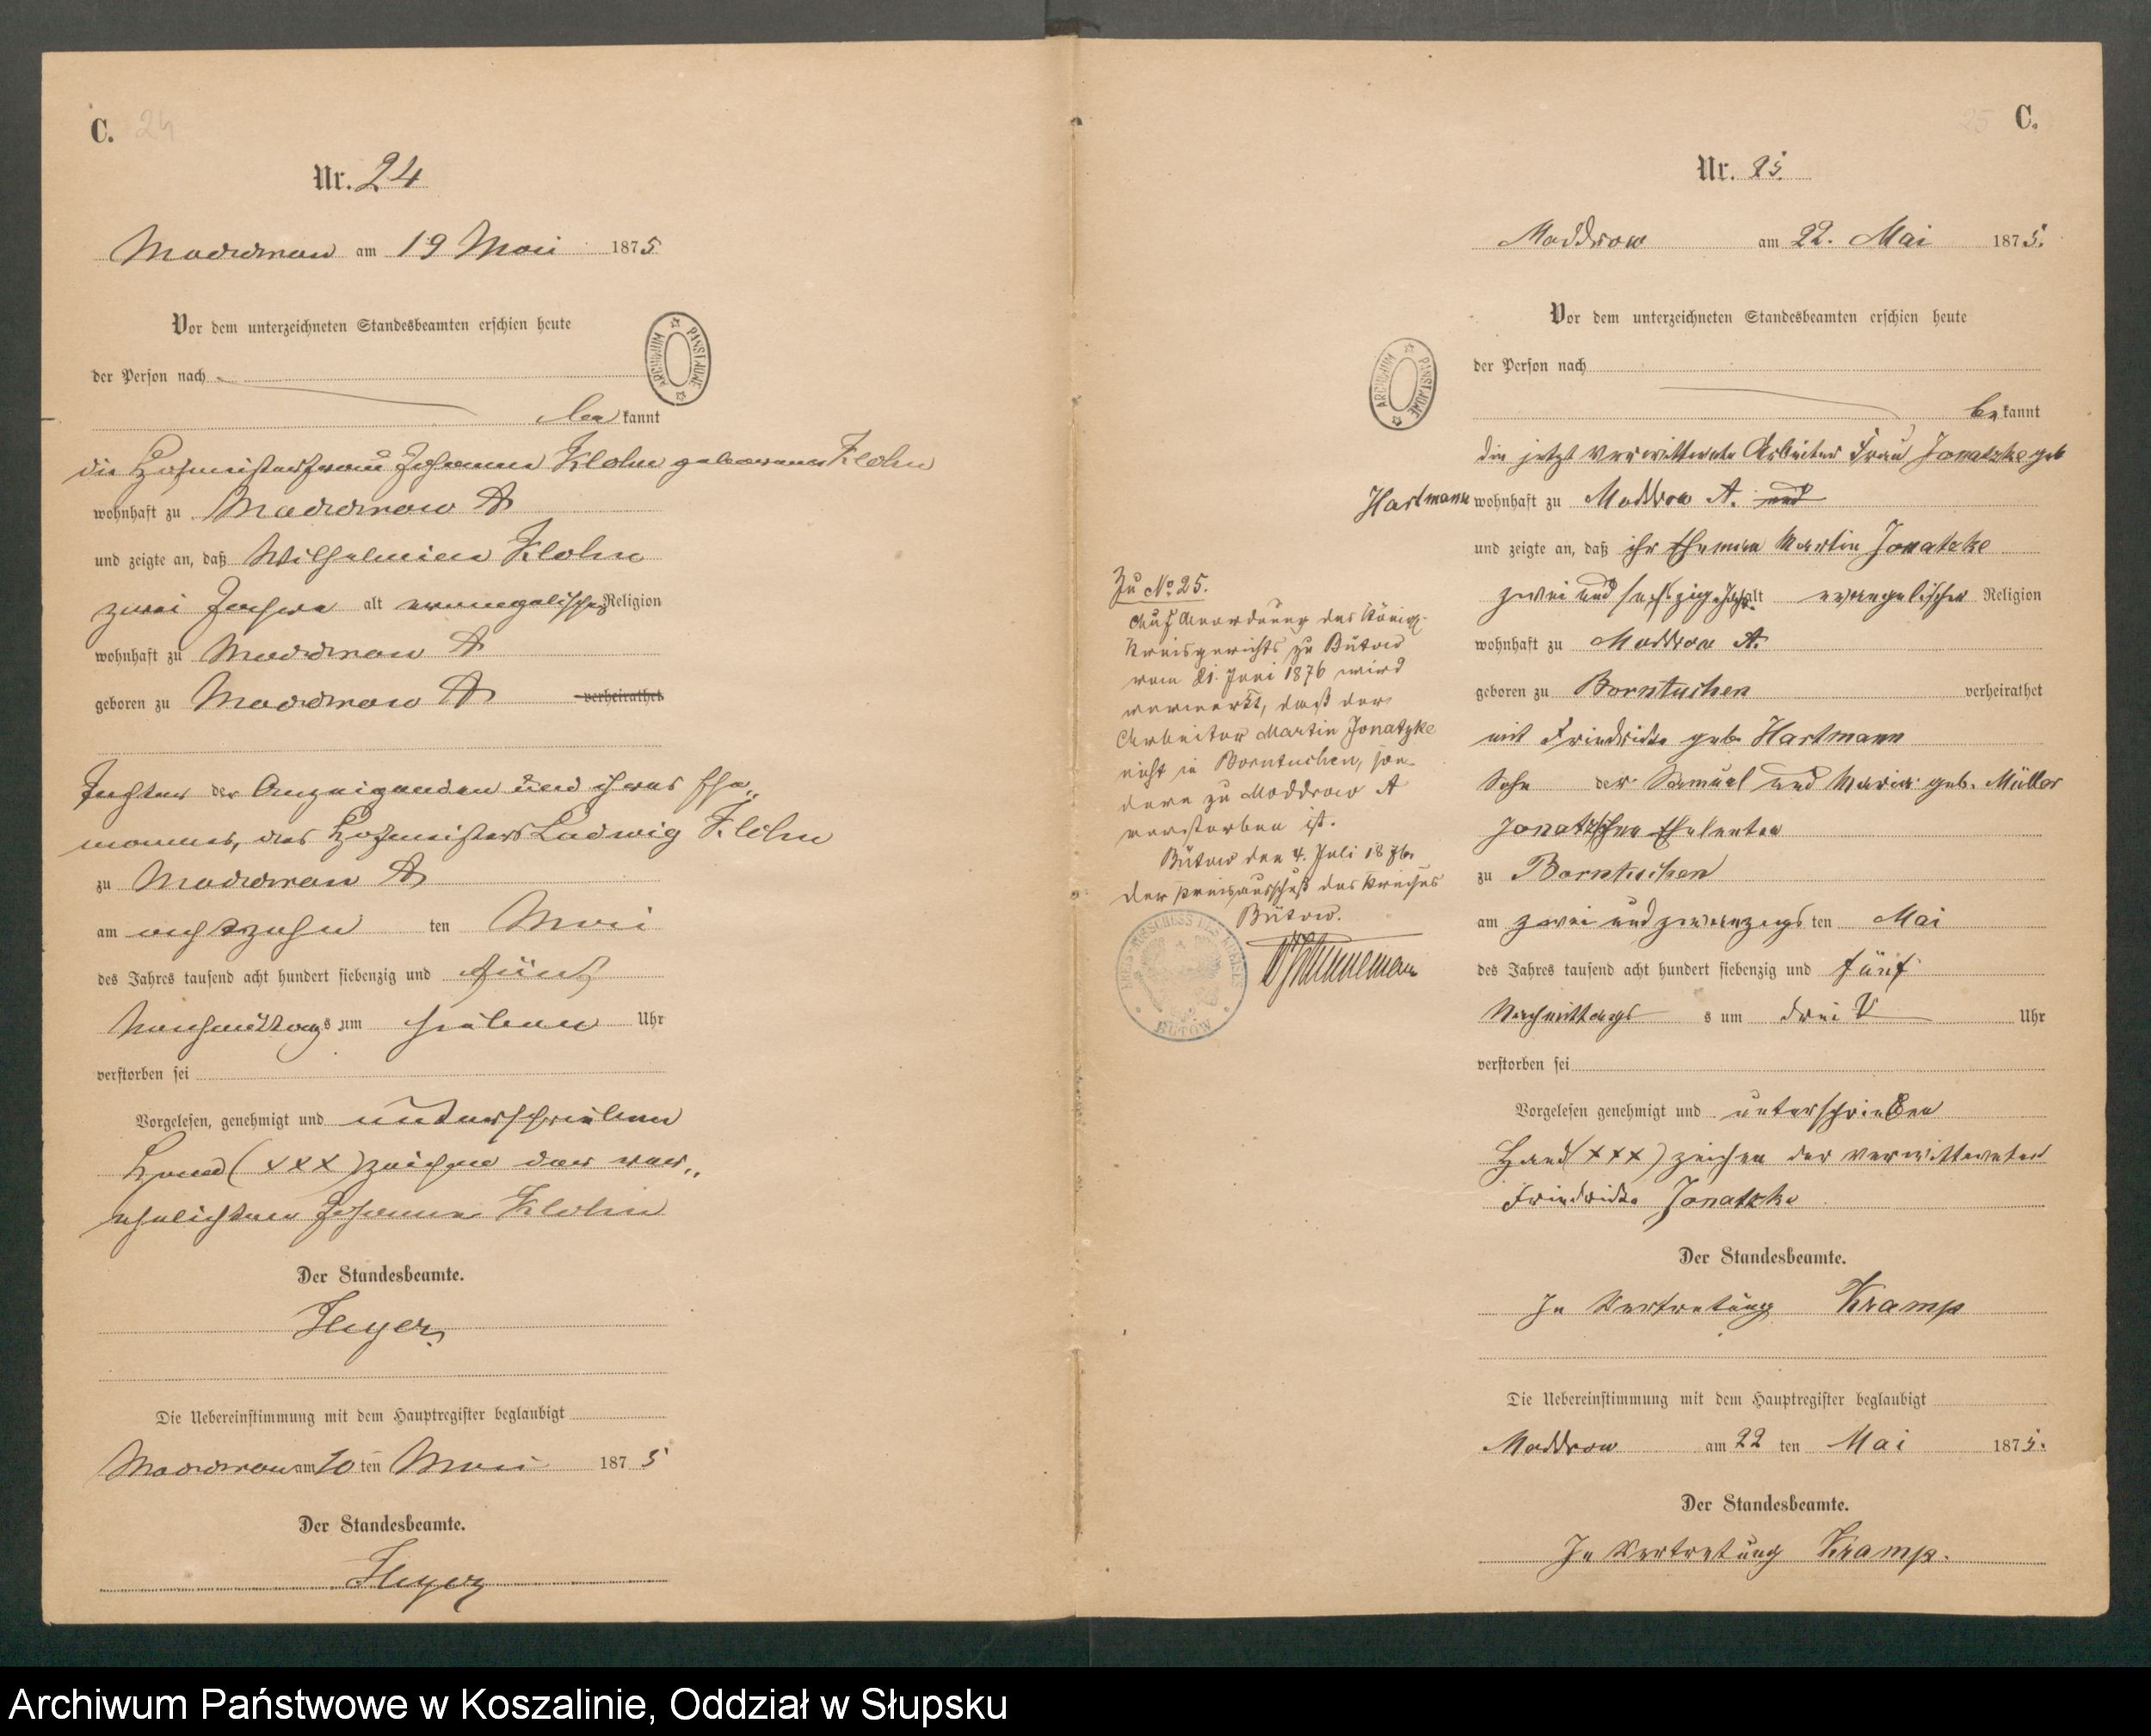 C. 24
Nr. 24
Moddrow am 19 Mai 1875
Vor dem unterzeichneten Standesbeamten erschien heute
der Person nach
bekannt
die Hofmeisterfrau Johanne Klohn geborene Klohn
wohnhaft zu Moddrow A
und zeigte an, daß Wilhelmine Klohn
zwei Jahre alt evangelischer Religion
wohnhaft zu Moddrow A
geboren zu Moddrow A verheirathet
Tochter der Anzeigenden und ihres Ehe„
mannes, des Hofmeisters Ludwig Klohn
zu Moddrow A
am achtzehn ten Mai
des Jahres tausend acht hundert siebenzig und fünf
Nachmittags um sieben Uhr
verstorben sei
Vorgelesen, genehmigt und unterschrieben
Hand (XXX) zeichen der ver„
ehelichten Johanne Klohn
Der Standesbeamte.
Die Uebereinstimmung mit dem Hauptregister beglaubigt
Moddrow am 20 ten Mai 1875
Der Standesbeamte.
25 C.
Nr. 25.
Moddrow am 22. Mai 1875.
Vor dem unterzeichneten Standesbeamten erschien heute
der Person nach
bekannt
die jetzt verwittwete Arbeiter Frau Jonatzke geb
Hartmann wohnhaft zu Moddrow A. und
und zeigte an, daß ihr Ehemann Martin Jonatzke
zwei und sechzig Jahr alt evangelischer Religion
wohnhaft zu Moddrow A.
geboren zu Borntuchen verheirathet
mit Friedricke geb. Hartmann
Sohn der Samuel und Maria geb. Müller
Jonatzkschen Eheleuten
zu Borntuchen
am zwei und zwanzigs ten Mai
des Jahres tausend acht hundert siebenzig und fünf
Nachmittags s um drei U Uhr
verstorben sei
Vorgelesen genehmigt und unterschrieben
Hand (XXX) zeichen der verwittweten
Friedricke Jonatzke
Der Standesbeamte.
In Vertretung Kramp
Die Uebereinstimmung mit dem Hauptregister beglaubigt
Moddrow am 22 ten Mai 1875.
Der Standesbeamte.
In Vertretung Kramp.
Zu No 25.
Auf Anordnung des Königl.
Kreisgerichts zu Bütow
vom 21. Juni 1876 wird
vermerkt, daß der
Arbeiter Martin Jonatzke
nicht in Borntuchen, son-
dern zu Moddrow A
verstorben ist.
Bütow den 4. Juli 1876.
Der Kreisausschuß des Kreises
Bütow.
KREIS-AUSSCHUSS DES KREISES
BÜTOW
ARCHIWUM PAŃSTWOWE
ARCHIWUM PAŃSTWOWE
Archiwum Państwowe w Koszalinie, Oddział w Słupsku